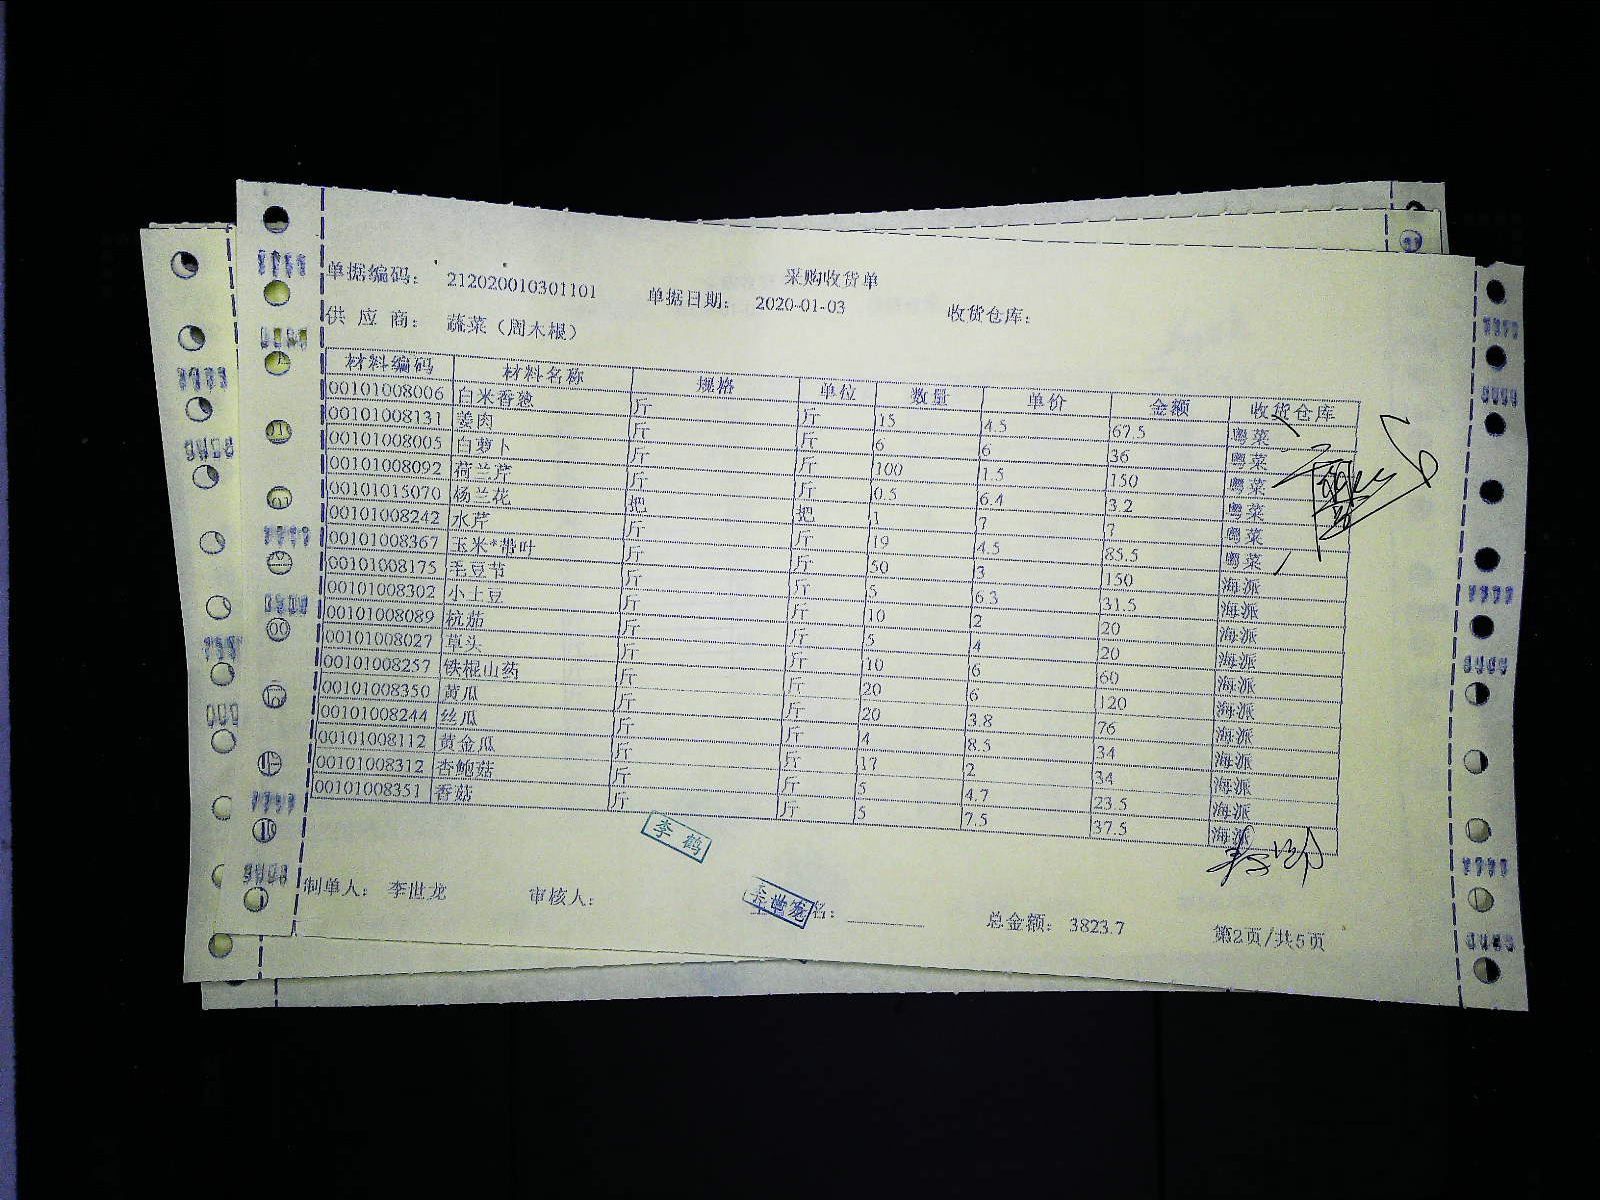 采购收货单
单据编码： 212020010301101 单据日期： 2020-01-03 收货仓库：
供 应 商： 蔬菜（周木根）
材料编码 材料名称 规格 单位 数量 单价 金额 收货仓库
00101008006 白米香葱 斤 斤 15 4.5 67.5 粤菜
00101008131 姜肉 斤 斤 6 6 36 粤菜
00101008005 白萝卜 斤 斤 100 1.5 150 粤菜
00101008092 荷兰芹 斤 斤 0.5 6.4 3.2 粤菜
00101015070 杨兰花 把 把 1 7 7 粤菜
00101008242 水芹 斤 斤 19 4.5 85.5 粤菜
00101008367 玉米*带叶 斤 斤 50 3 150 海派
00101008175 毛豆节 斤 斤 5 6.3 31.5 海派
00101008302 小土豆 斤 斤 10 2 20 海派
00101008089 杭茄 斤 斤 5 4 20 海派
00101008027 草头 斤 斤 10 6 60 海派
00101008257 铁棍山药 斤 斤 20 6 120 海派
00101008350 黄瓜 斤 斤 20 3.8 76 海派
00101008244 丝瓜 斤 斤 4 8.5 34 海派
00101008112 黄金瓜 斤 斤 17 2 34 海派
00101008312 杏鲍菇 斤 斤 5 4.7 23.5 海派
00101008351 香菇 斤 斤 5 7.5 37.5 海派
李鹤
制单人： 李世龙 审核人： 李世龙 名： 总金额： 3823.7 第2页/共5页